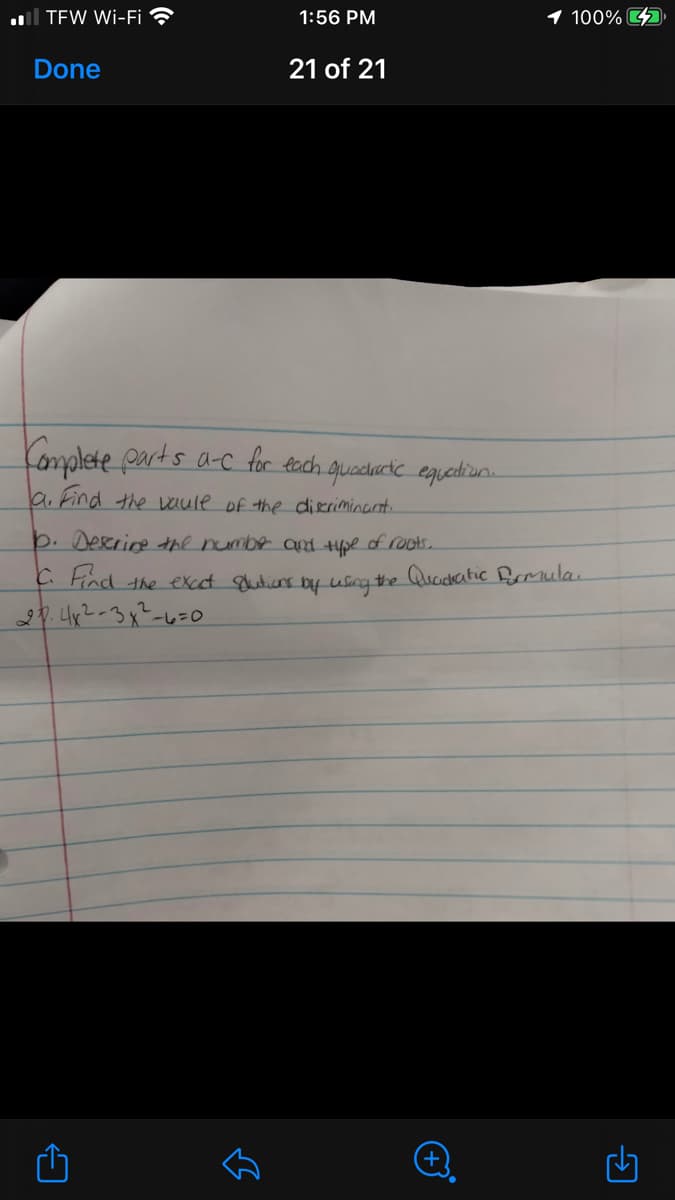 TFW Wi-Fi 1:56 PM 100%
Done 21 of 21
Complete parts a-c for each quadratic equation.
a. Find the vaule of the discriminant.
b. Descripe the number and type of roots.
C. Find the exact solutions by using the Quadratic Formula.
27. 4x²-3x²-6=0